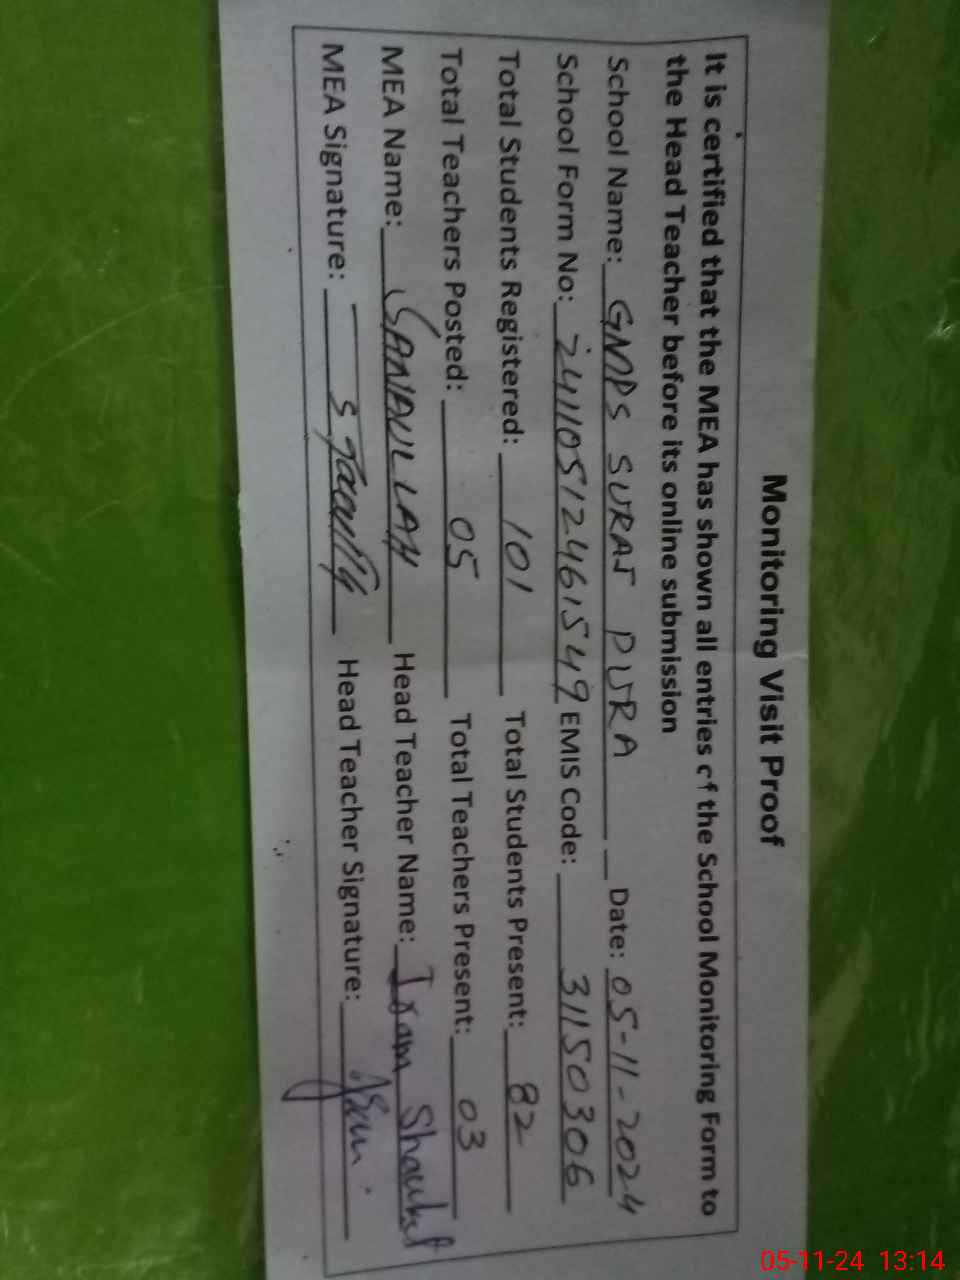 Monitoring Visit Proof
It is certified that the MEA has shown all entries of the School Monitoring Form to
the Head Teacher before its online submission
School Name: GMPS SURAJ PURA Date: 05-11-2024
School Form No: 241105124615549 EMIS Code: 31150306
Total Students Registered: 101 Total Students Present: 82
Total Teachers Posted: 05 Total Teachers Present: 03
MEA Name: SANAULLAH Head Teacher Name: Iram Shaukat
MEA Signature: Head Teacher Signature:
05-11-24 13:14